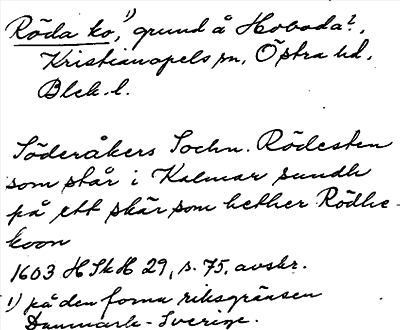 Röda ko,¹⁾ grund å Hoboda?,
Kristianopels sn, Östra hd,
Blek. l.
Söderåkers Sochn. Rödesten
som står i Kalmar sundh
på ett skär som hether Rödhe-
koon
1603 HSkH 29, s. 75, avskr.
1) på den forna riksgränsen
Danmark - Sverige.